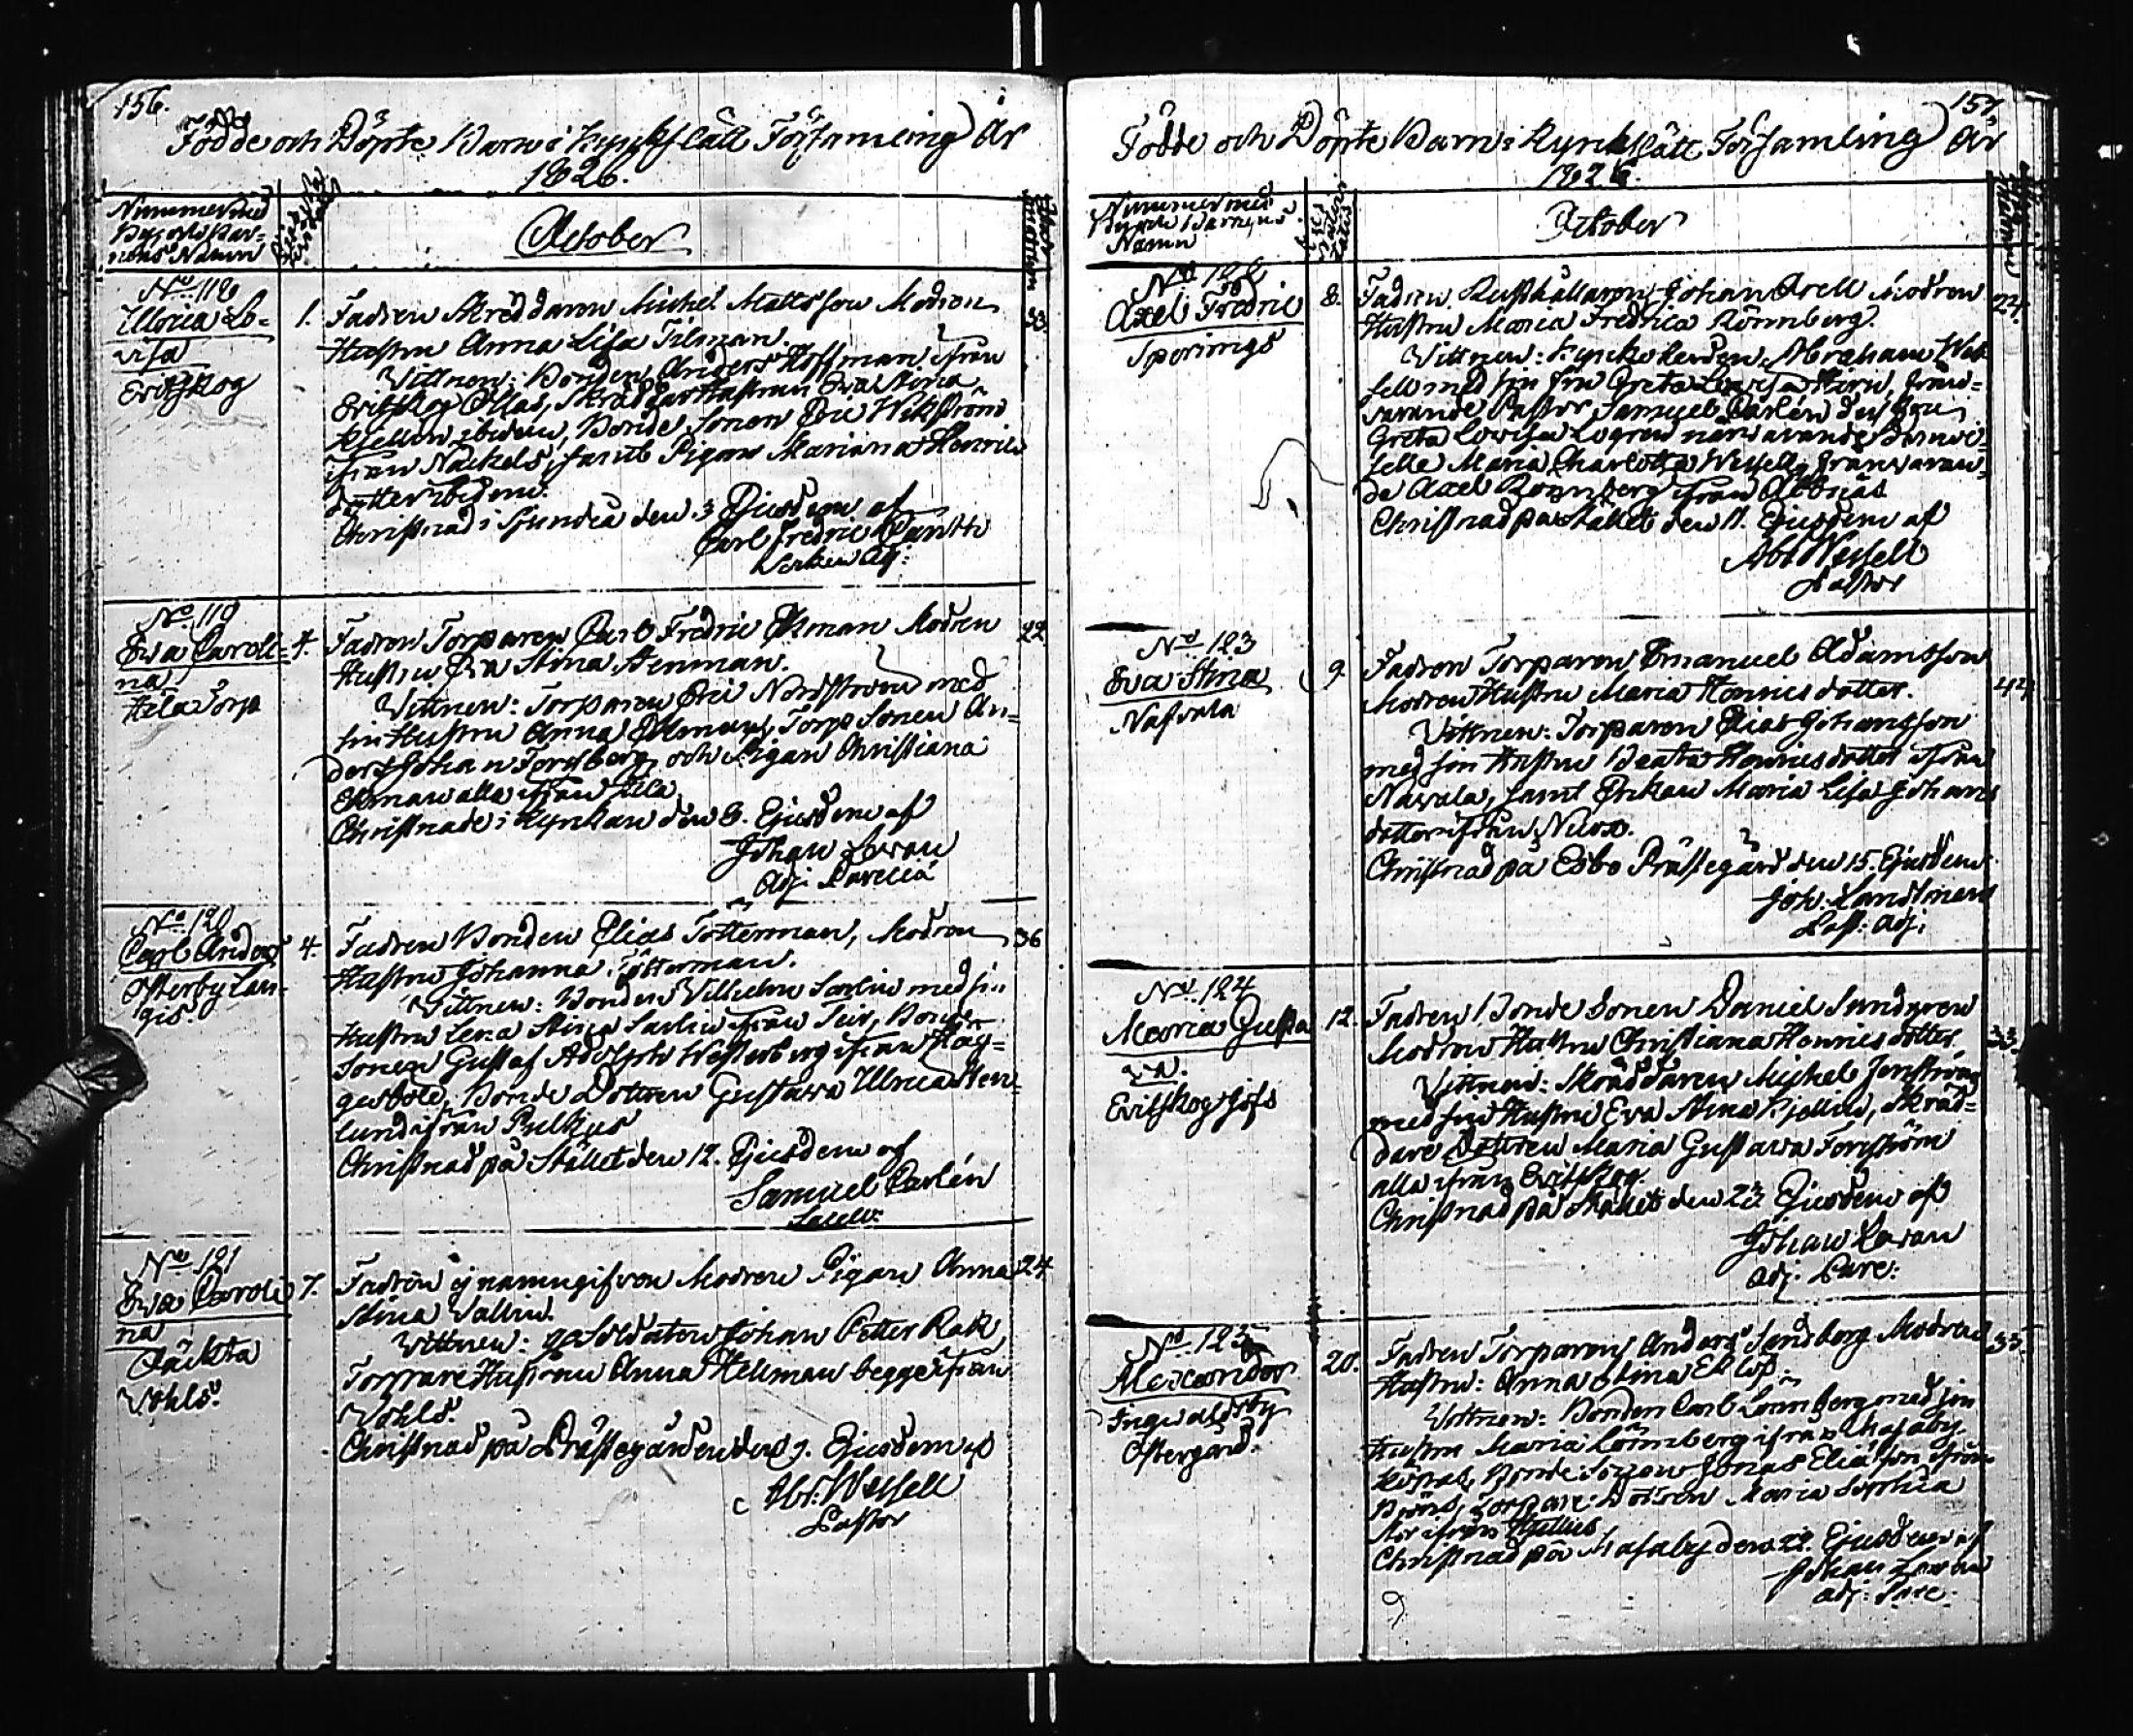 156.
Födde och Döpte Barn i Kyrkslätt Församling År
1826.
Nummer med
Byn och Bar=
nens Namn
October
No 118
Ulrica Lo=
visa
Evitskog
1.
Fadren Skreddaren Michel Mattsson Modren
33.
Hustru Anna Lisa Tilman.
Vittnen: Bonden Anders Hoffman ifrån
Evitskog Ollas, Skräddar Hustrun Eva Stina
Kjellin ibidem, Bonde Sonen Eric Wikström
ifrån Näckels, samt Pigan Mariana Henrics
dotter ibidem.
Christnad i Sjundeå den 3 Ejusdem af
Carl Fredric
Adj:
No 119
Eva Caroli=
na
Hila Torp
4.
Fadren Torparen Carl Fredric Ekman Modren
22.
Hustru Eva Stina Stenman.
Vittnen: Torparen Eric Nordström med
sin Hustru Anna Ekman, Torp Sonen An=
ders Johan Forssberg, och Pigan Christiana
Ekman alla ifrån Hila
Christnade i Kyrkan den 8. Ejusdem af
Johan Levan
Adj. Paroeciæ
No 120
Carl Anders
Österby Lan=
gis.
4.
Fadren Bonden Elias Tötterman, Modren
36
Hustru Johanna Tötterman.
Vittnen: Bonden Vilhelm Sarlin med sin
Hustru Lena Stina Sarlin ifrån Teir, Bonde
Sonen Gustaf Adolph Westerberg ifrån Hag=
gesböle, Bonde Dottren Gustava Ulrica Sten=
lund ifrån
Christnad på Stället den 12. Ejusdem af
Samuel Carlén
No 121
Eva Caroli
na
Täckta
Wohls.
7.
Fadren ej namngifven Modren Pigan Anna
24
Stina Vallin.
Vittnen: Soldaten Johan Petter Rask
Torpare Hustrun Anna Hellman begge ifrån
Wohls.
Christnad på Prästegården den 9. Ejusdem af
Abr. Wessell
Pastor
157.
Födde och Döpte Barn i Kyrkslätt Församling År
1826.
Nummer med
Byn och Barnens
Namn
October
No 122
Axel Fredric
Sperrings
8.
Fadren Rusthållaren Johan Arell Modren
27.
Hustru Maria Fredrica Rönnberg.
Vittnen: Kyrckoherden Abraham Wes
sell med sin Fru Greta Lovisa, från=
varande Pastor Samuel Carlén dess Fru
Greta Lovisa Logren närvarande Demoi=
selle Maria Charlotta Wessell, frånvaran=
de Axel Rönnberg ifrån
Christnad på Stället den 11. Ejusdem af
Abr Wessell
Pastor
No 123
Eva Stina
Nafvala
9.
Fadren Torparen Emanuel Adamsson
42
Modren Hustru Maria Henricsdotter.
Vittnen: Torparen Elias Johansson
med sin Hustru Beata Henricsdotter ifrån
Navala, samt Enkan Maria Lisa Johans
dotter ifrån
Christnad på Esbo Prästegård den 15. Ejusdem
Joh. Landtman
Past: adj:
No 124
Maria Gusta
va.
Evitskog Jofs
12.
Fadren Bonde Sonen Daniel Sundgren
33.
Modren Hustru Christiana Henricsdotter
Vittnen: Skräddaren Michel Jernström
med sin Hustru Eva Stina Kjellin, Skräd=
dare Dottren Maria Gustava Forsström
alla ifrån Evitskog.
Christnad på Stället den 23 Ejusdem af
Johan Levan
adj. Paroe:
No 125
Alexander
Ingvaldsby
Östergård.
20.
Fadren Torparen Anders Sandberg Modren
33.
Hustru: Anna Stina Eklöf.
Vittnen: Bonden Carl Lönnberg med sin
Hustru Maria Lönnberg ifrån Masaby
Bonde Sonen Jonas Eliasson ifrån
Torpare Dottren Maria Sophia
ifrån
Christnad på Masaby den 22. Ejusdem af
Johan Levan
adj: Paroe: